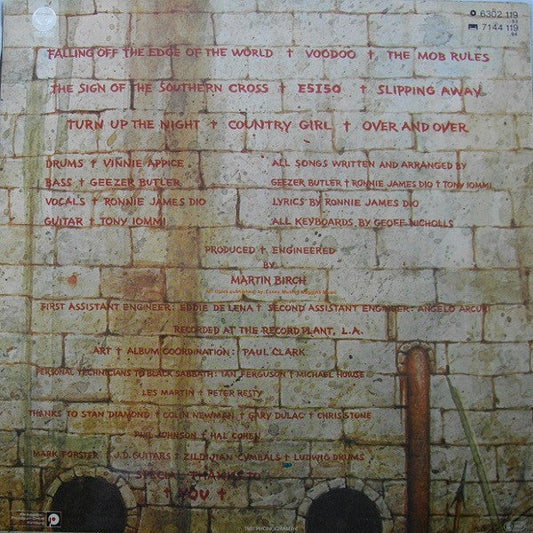 6302 119
7144 119
FALLING OFF THE EDGE OF THE WORLD † VOODOO † THE MOB RULES
THE SIGN OF THE SOUTHERN CROSS † E5150 † SLIPPING AWAY
TURN UP THE NIGHT † COUNTRY GIRL † OVER AND OVER
DRUMS † VINNIE APPICE
BASS † GEEZER BUTLER
VOCALS † RONNIE JAMES DIO
GUITAR † TONY IOMMI
ALL SONGS WRITTEN AND ARRANGED BY
GEEZER BUTLER † RONNIE JAMES DIO † TONY IOMMI
LYRICS BY RONNIE JAMES DIO
ALL KEYBOARDS BY GEOFF NICHOLLS
PRODUCED † ENGINEERED
BY
MARTIN BIRCH
FIRST ASSISTANT ENGINEER: EDDIE DELENA † SECOND ASSISTANT ENGINEER: ANGELO ARCURI
RECORDED AT THE RECORD PLANT, L.A.
ART † ALBUM COORDINATION: PAUL CLARK
PERSONAL TECHNICIANS TO BLACK SABBATH: IAN FERGUSON † MICHAEL HOWSE
LES MARTIN † PETER RESTY
THANKS TO STAN DIAMOND † COLIN NEWMAN † GARY DULAC † CHRIS STONE
PAUL JOHNSON † HAL COHEN
MARK FORSTER † J.D. GUITARS † ZILDJIAN CYMBALS † LUDWIG DRUMS
SPECIAL THANKS TO
† YOU †